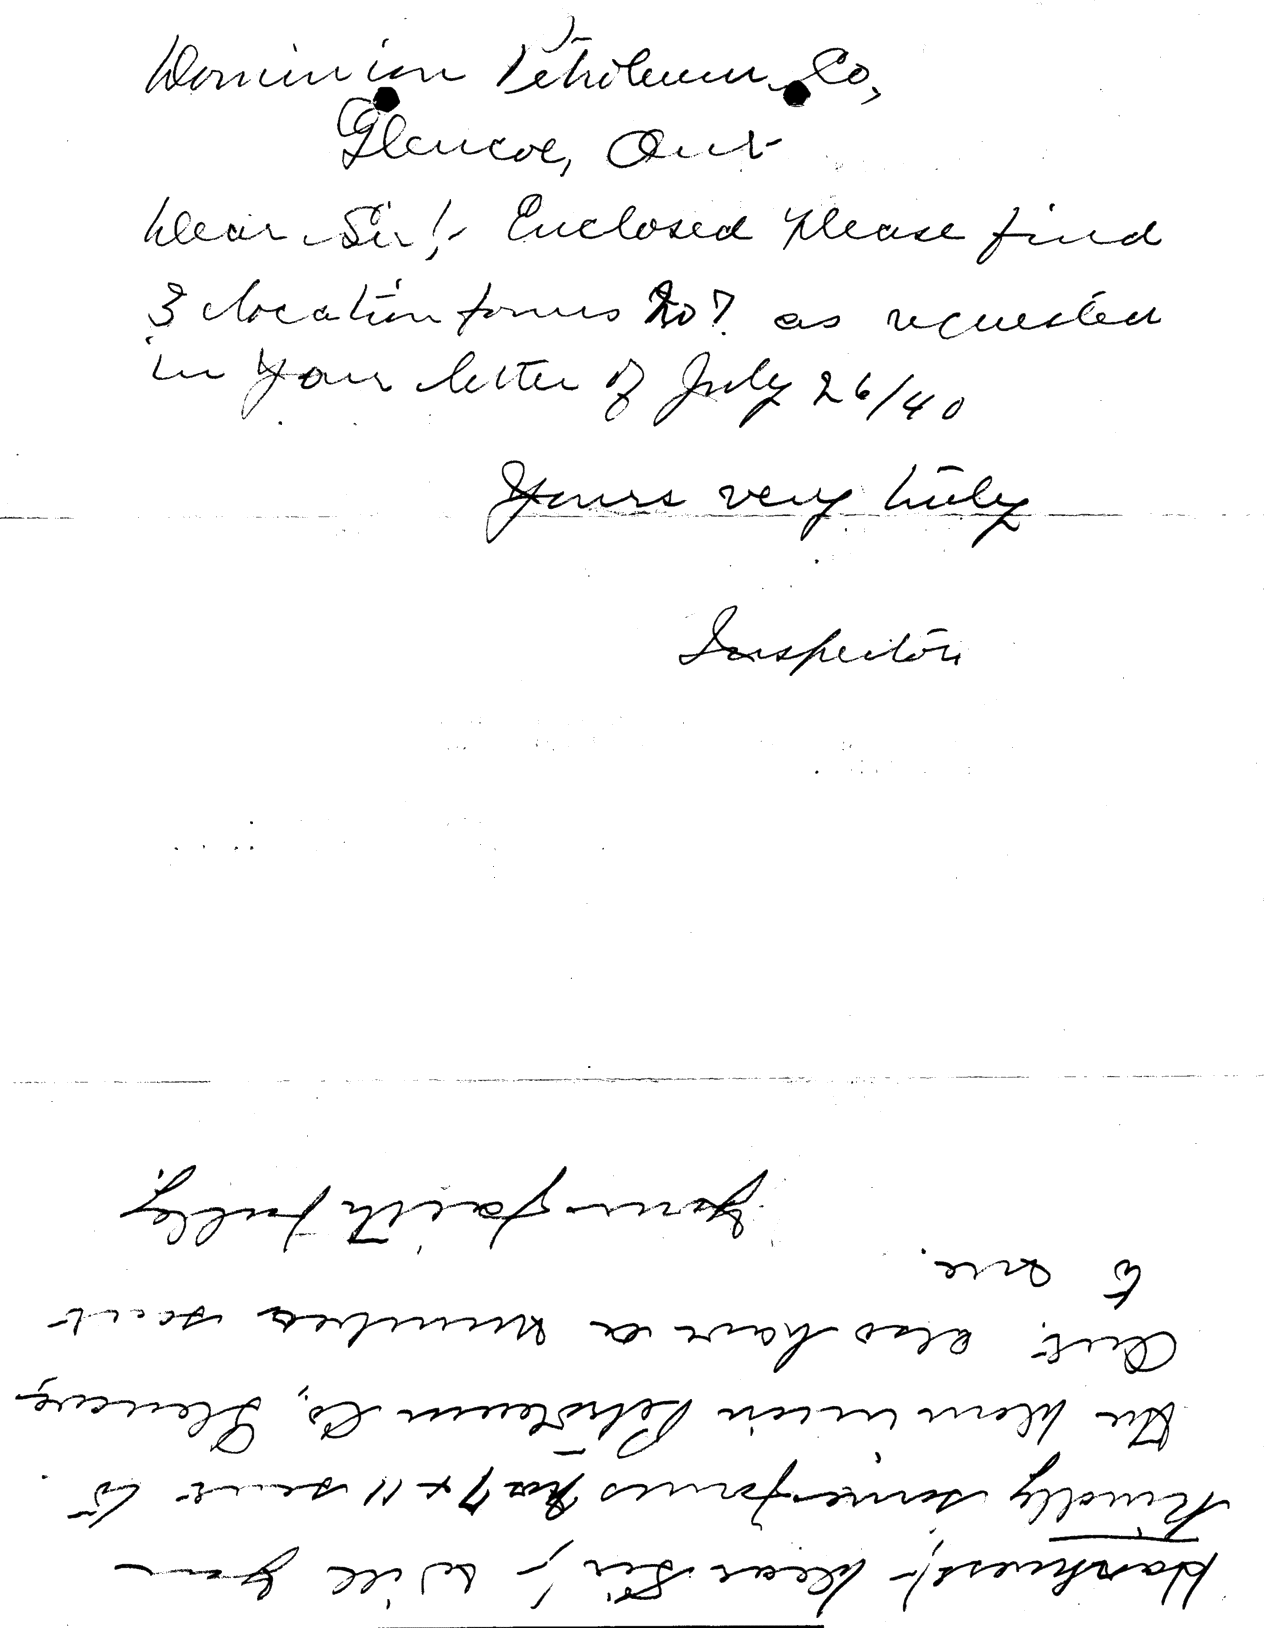 Dominion Petroleum Co,
Glencoe, Ont
Dear Sir!- Enclosed please find
3 location forms No 7 as requested
in your letter of July 26/40
Yours very truly
Inspector
Harkness!- Dear Sir!- Will you
Kindly some forms No 7 & 11 sent to
the Dominion Petroleum Co, Glencoe,
Ont, also have a number sent
to me.
Yours faithfully.